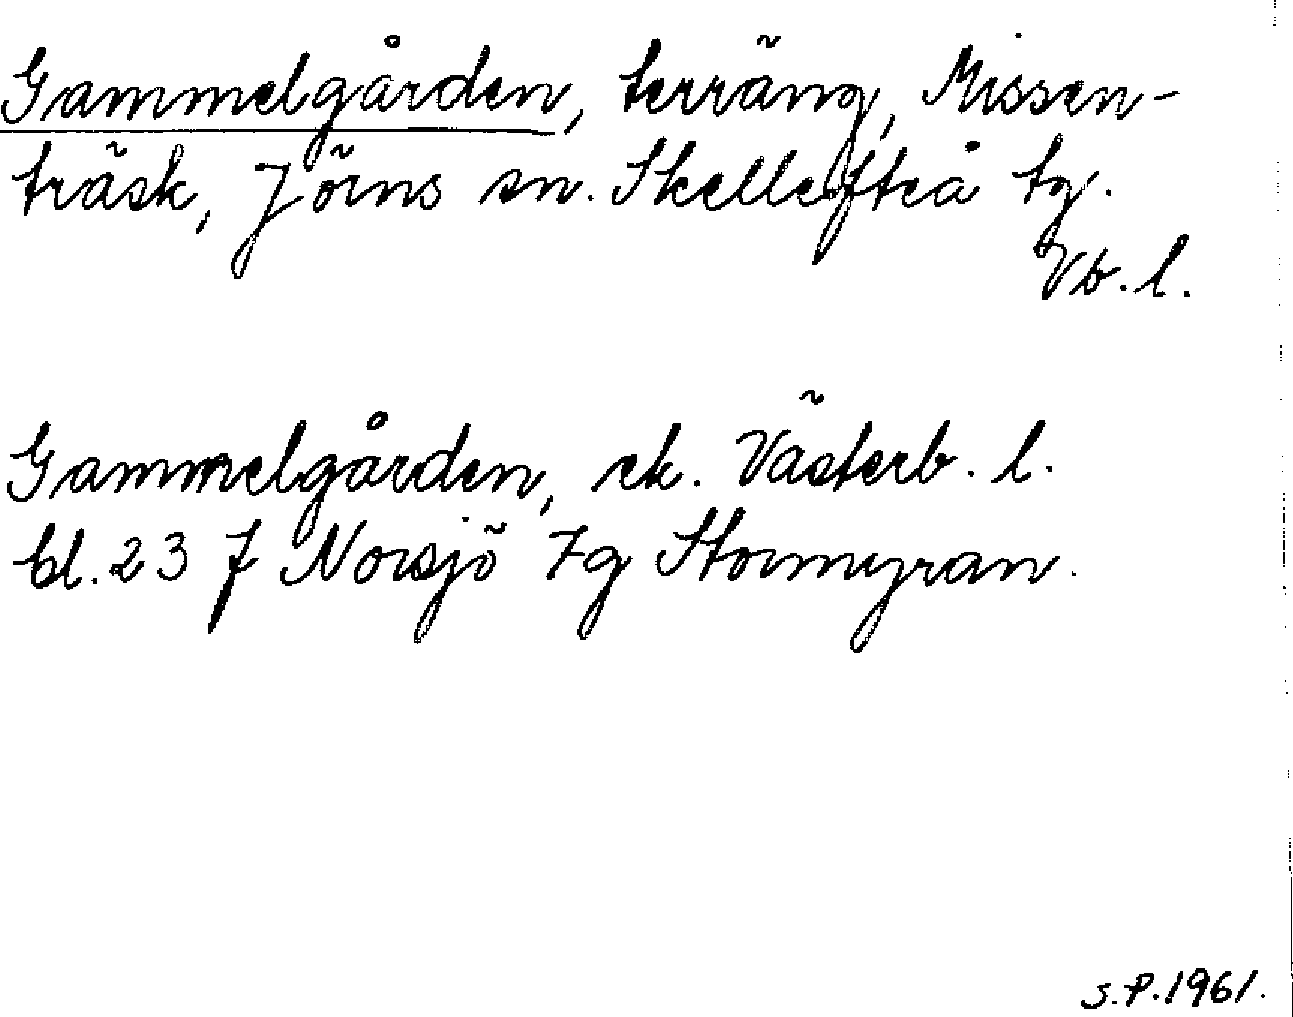 Gammelgården, terräng, Missen-
träsk, Jörns sn. Skellefteå tg.
Vb. l.
Gammelgården, ek. Västerb. l.
bl. 23 J Norsjö 7g Stormyran.
S.P. 1961.